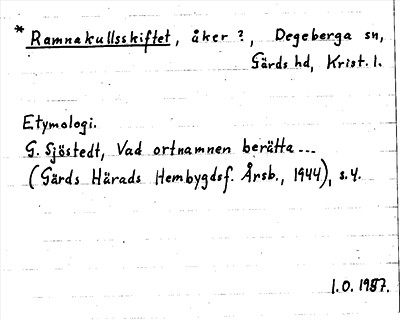 * Ramnakullsskiftet, åker?, Degeberga sn,
Gärds hd, Krist. l.
Etymologi.
G. Sjöstedt, Vad ortnamnen berätta ---
(Gärds Härads Hembygdsf. Årsb., 1944), s. 4.
1.0. 1987.